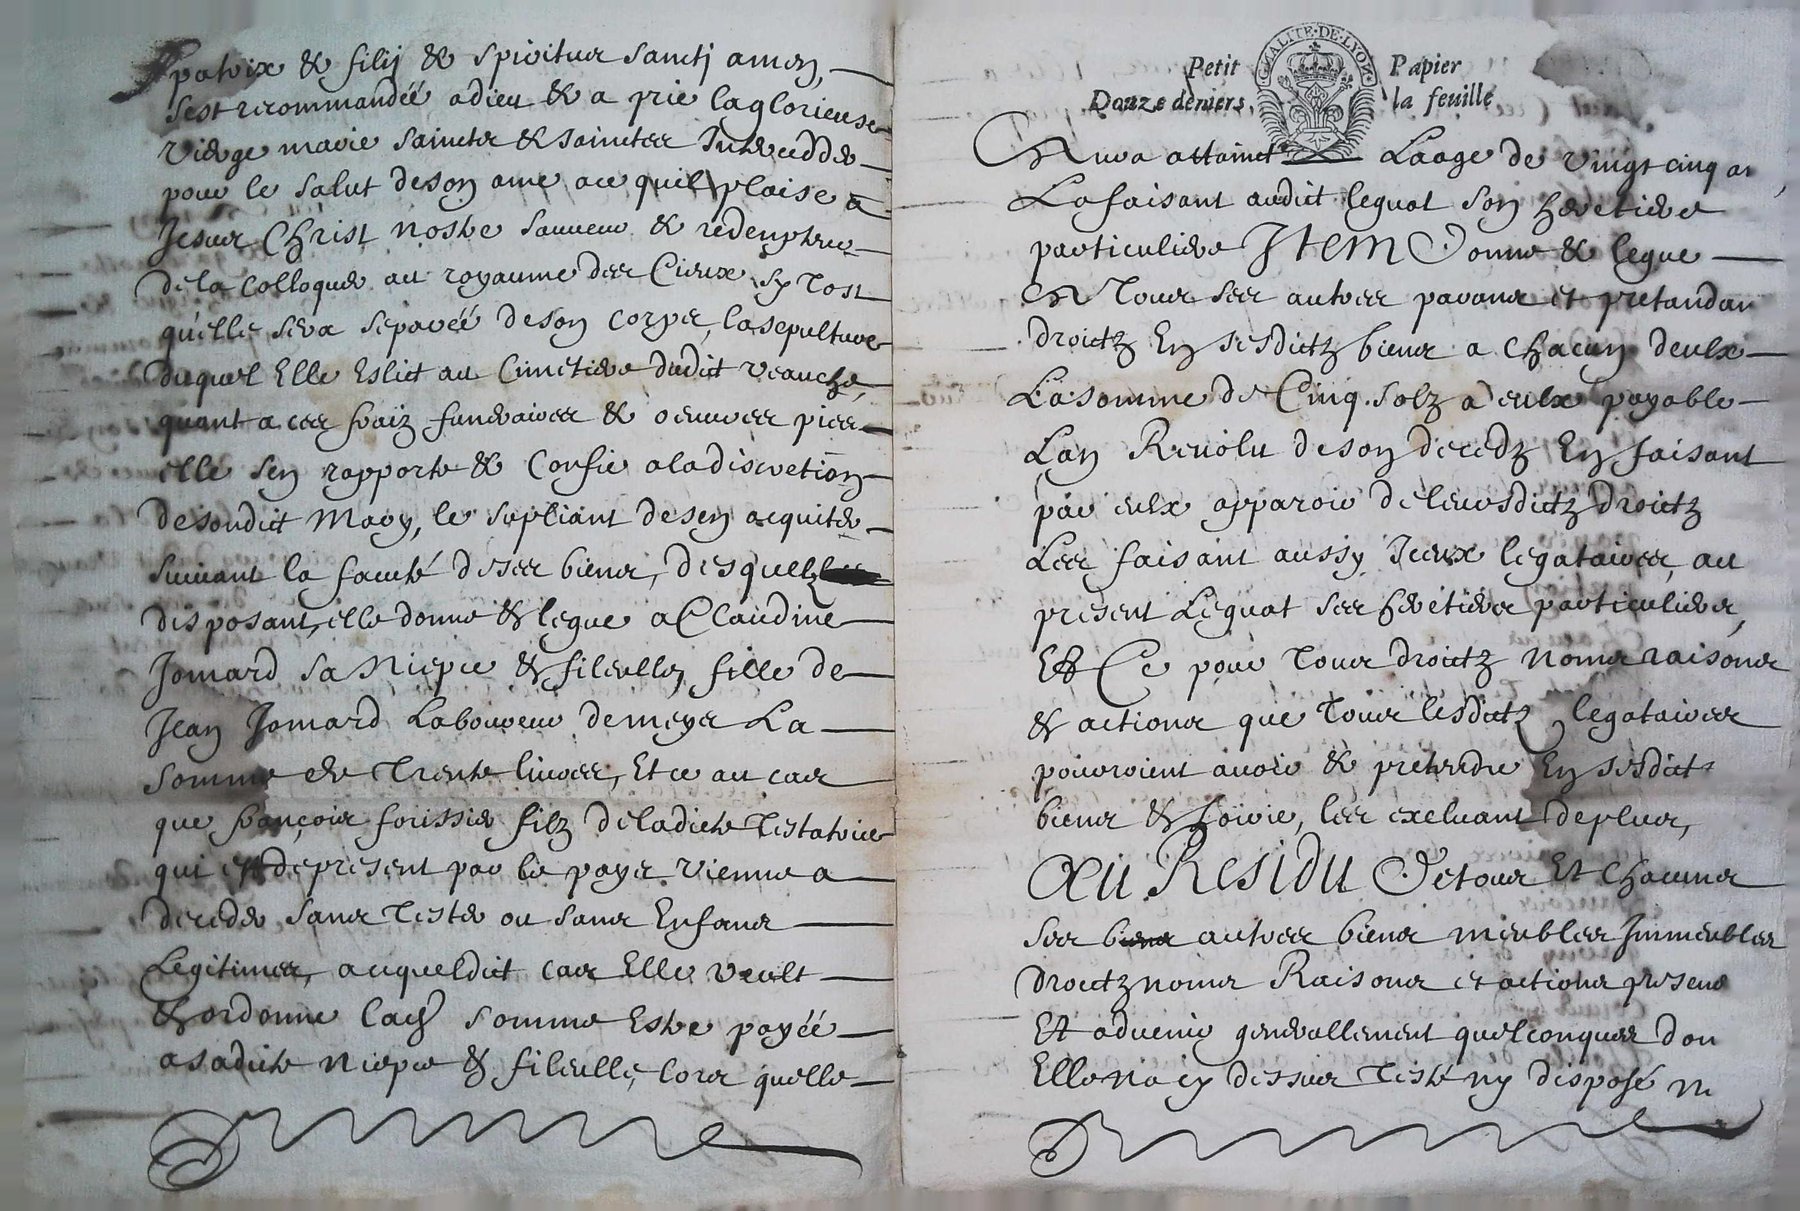 patrix & filij & spiritus sanctj amen,
sest recommandéé adieu & a prié la glorieuse
vierge marie saincts & sainctes Intercedder
pour le salut de son ame ace quil plaise a
Jesus Christ nostre sauveur & redempteur
de la colloquer au royaume des Cieux sy tost
quelle sera separéé de son corps, la sepulture
duquel Elle Eslict au Cimetiere dudict veauche,
quant a ces fraiz funeraires & oeuvres pies
elle sen rapporte & confie a la discretion
de sondict Mary, le supliant de sen acquiter
suivant la faculté de ses biens, desquelz
disposant, elle donne & legue a Claudine
Jomard sa Niepce & filleulle, fille de
Jean Jomard Laboureur de meys La
somme de Trente livres, Et ce au cas
que françois forissier filz de ladicte Testatrice
qui est de present par le pays vienne a
deceder sans Tester ou sans Enfans
Legitimes, auqueldict cas Elle veult
& ordonne lad somme Estre payéé
a sadicte niepce & filleulle, lors quelle
GNALITE · DE · LYON
Petit Papier
Douze deniers la feuille
Aura attainct Laage de vingt cinq an
La faisant audict legat son heretiere
particuliere Item Donne & legue
A Tous ses autres parans et pretandan
droictz En sesdictz biens a chacun deulx
La somme de Cinq solz a eulx payable
Lan Revolu de son decedz En faisant
par eulx apparoir de leursdictz droictz
Les faisant aussy Iceux legataires, au
present Legat ses heretiers particuliers,
Et Ce pour Tous droictz Noms raisons
& actions que Tous lesdictz legataires
pourroient avoir & pretendre En sesdicts
biens & hoirie, les excluant de plus,
Au Residu De tous Et chacuns
ses biens autres biens meubles Immeubles
Droictz noms Raisons et actions presens
Et advenir generallement quelconques don
Elle na cy dessus Testé ny disposé n